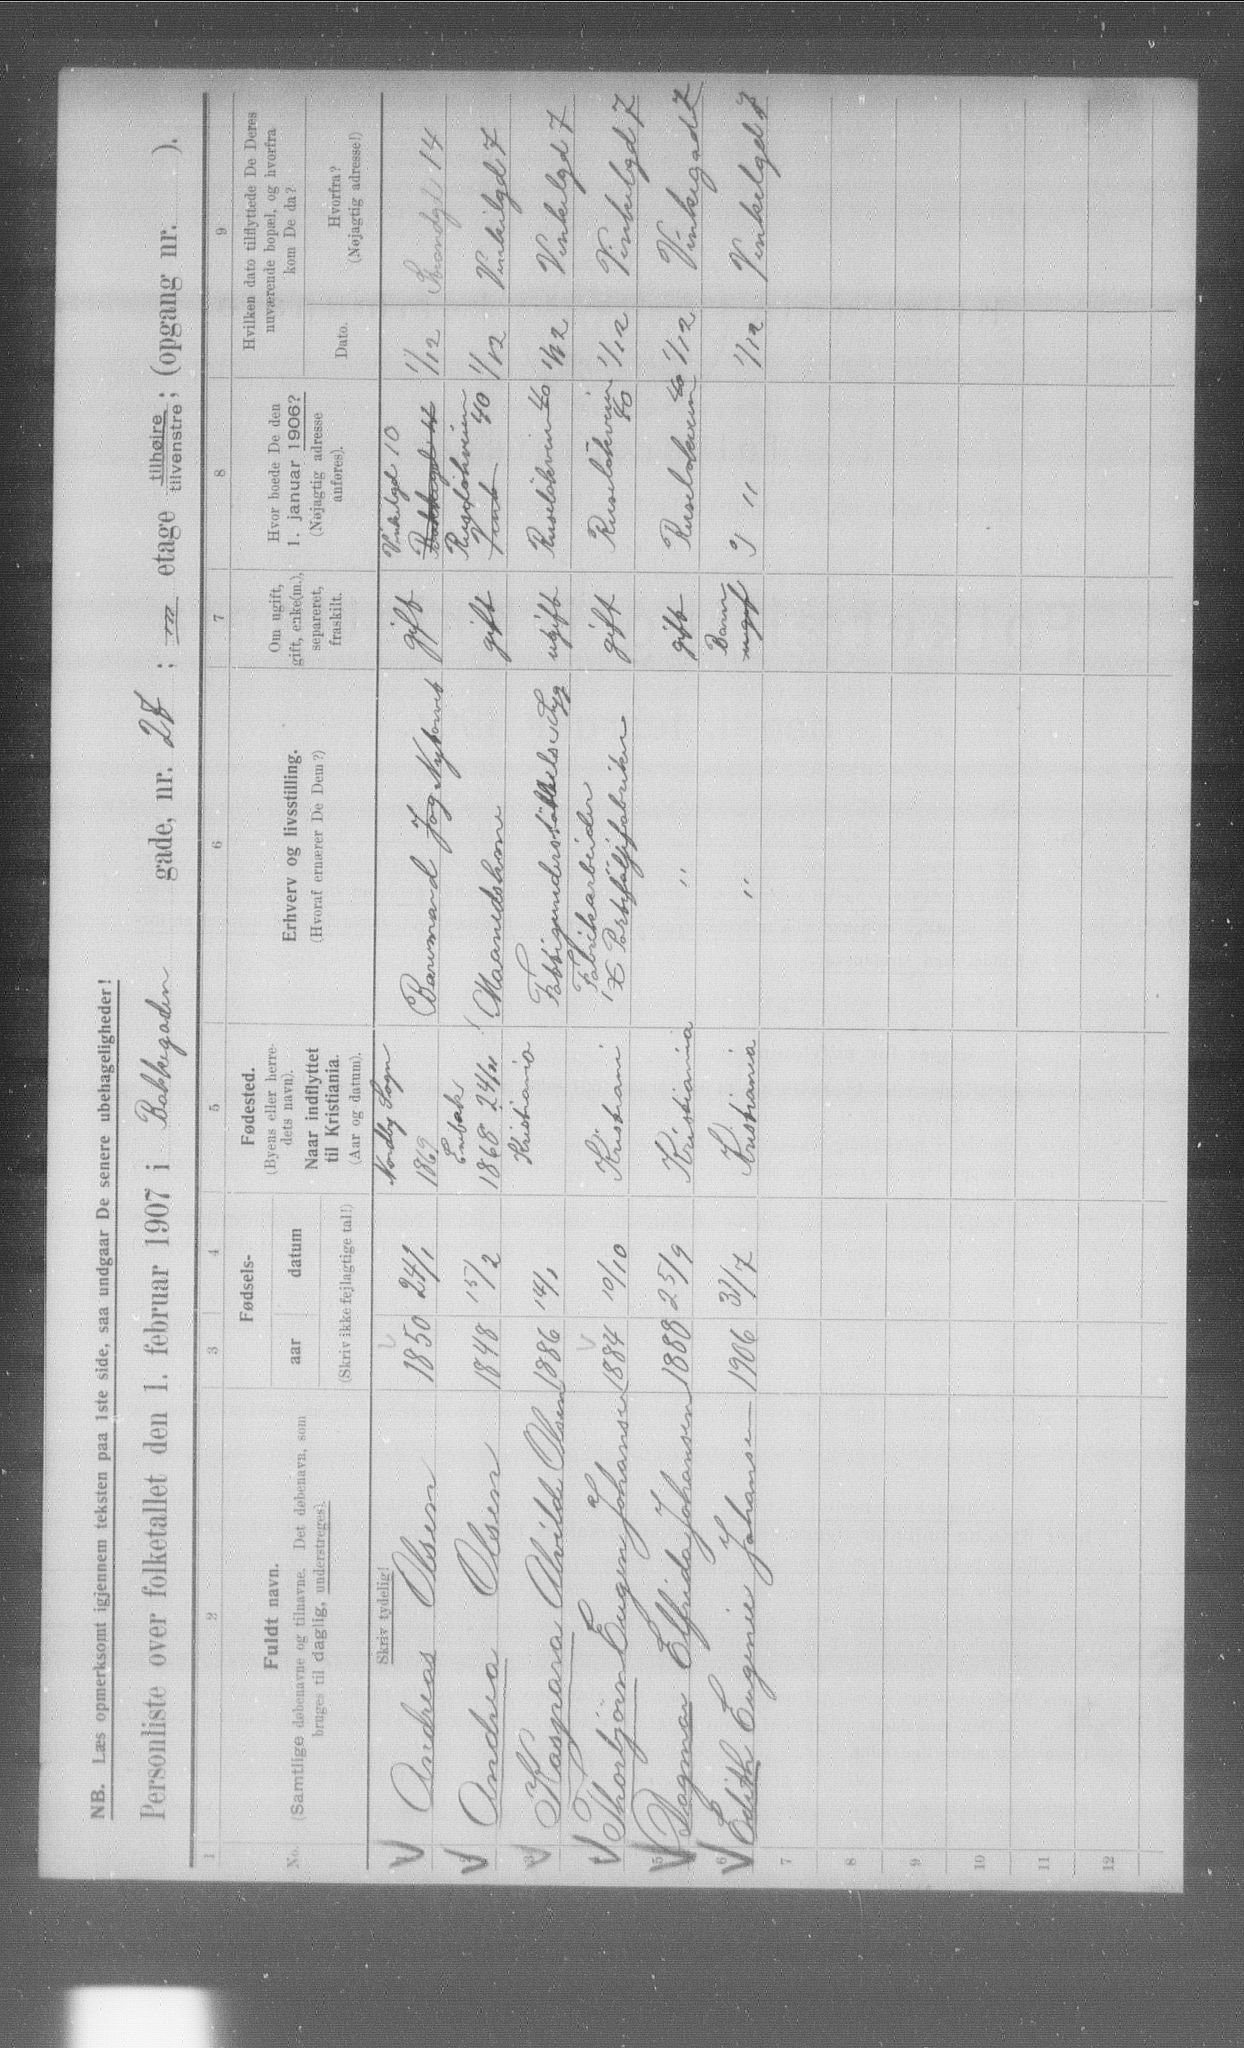 NB. Læs opmerksomt igjennem teksten paa 1ste side, saa undgaar De senere ubehageligheder!
Personliste over folketallet den 1. februar 1907 i Bakkegaden gade, nr. 28 ; III etage tilhøire / tilvenstre; (opgang nr. ).
1 2 3 4 5 6 7 8 9
No.
Fuldt navn.
(Samtlige døbenavne og tilnavne. Det døbenavn, som
bruges til daglig, understreges).
Fødsels-
aar datum
(Skriv ikke fejlagtige tal!)
Fødested.
(Byens eller herre-
dets navn).
Naar indflyttet
til Kristiania.
(Aar og datum).
Erhverv og livsstilling.
(Hvoraf ernærer De Dem?)
Om ugift,
gift, enke(m.),
separeret,
fraskilt.
Hvor boede De den
1. januar 1906?
(Nøjagtig adresse
anføres).
Hvilken dato tilflyttede De Deres
nuværende bopæl, og hvorfra
kom De da?
Dato.
Hvorfra?
(Nøjagtig adresse!)
Skriv tydelig!
Andreas Olsen 1850 24/1 Nordby Sogn 1869 gift Vinkelgd 10 1/12 14
Andrea Olsen 1848 15/2 Enebak 1868 24/11 Maanedskone gift Ruseløkveien 40 1/12 Vinkelgd 7
3 Kaspara Alvilde Olsen 1886 14/1 Kristiania Fattigunderstøttelse Syg ugift Ruseløkvein 40 1/12 Vinkelgd 7
Thorbjørn Eugen Johansen 1884 10/10 Kristiani Fabrikarbeider gift Ruseløkveien 40 1/12 Vinkelgd 7
5 Dagmar Elfrida Johansen 1888 25/9 Kristiania " gift Ruseløkveien 40 1/12 Vinkegad 7
6 Edith Eugenie Johansen 1906 31/7 Kristiania " Barn ugift " 1/12 Vinkelgd 7
7
8
9
10
11
12